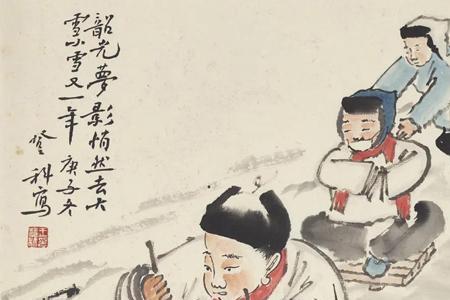 韶光夢影悄然去大
雪小雪又一年庚子冬
登科寫